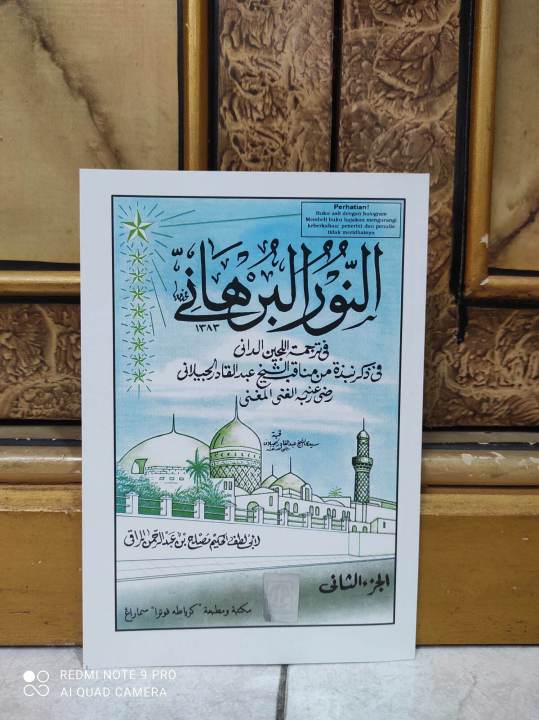 Perhatian!
Buku asli dengan hologram
Membeli buku bajakan mengurangi
keberkahan; penerbit dan penulis
tidak meridhainya
النُّورُ البُرْهَانِيّ
١٣٨٣
فى ترجمة اللجين الدانى
فى ذكر نبذة من مناقب الشيخ عبد القادر الجيلانى
رضى عنه الغنى المغنى
قبة
سيدنا الشيخ عبد القادر الجيلانى
لابى لطف الحكيم مصلح بن عبد الرحمن المراقى
الجزء الثانى
مكتبة ومطبعة "كرياطه فوترا" سماراغ
REDMI NOTE 9 PRO
AI QUAD CAMERA